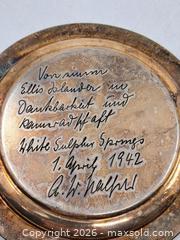 Von einem
Ellis Islander in
Dankbarkeit und
Kameradschaft
White Sulphur Springs
1. April 1942
Copyright 2026 - MaxSold.com